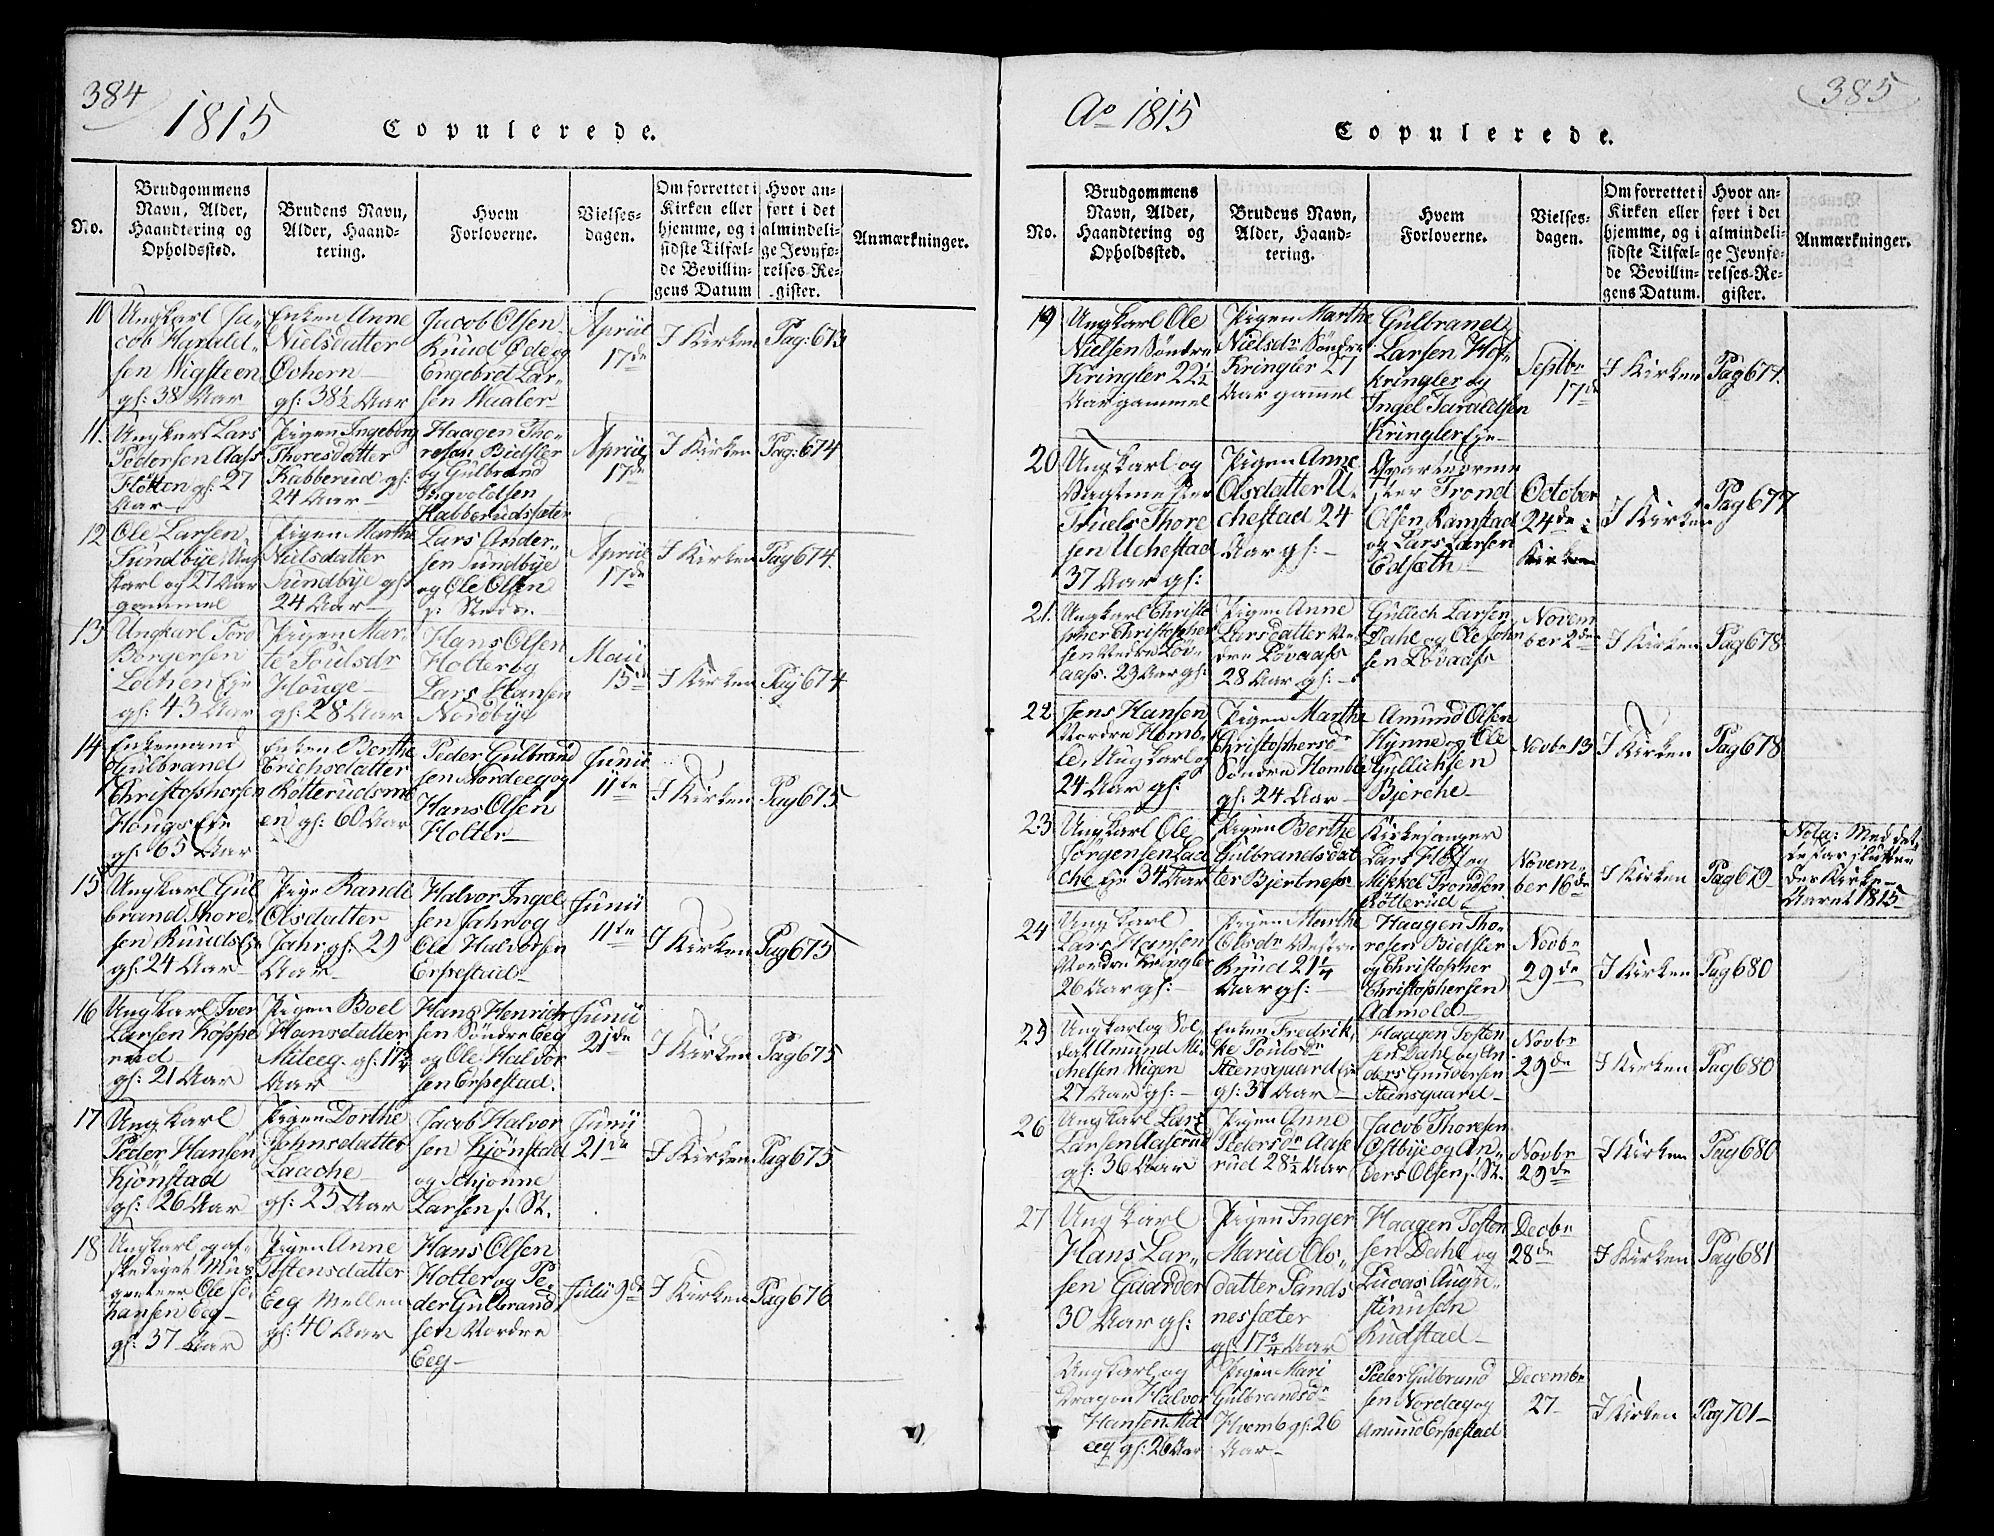 384
1815
Copulerede.
No.
Brudgommens Navn, Alder, Haandtering og Opholdssted.
Brudens Navn, Alder, Haandtering.
Hvem Forloverne.
Vielses-dagen.
Om forrettet i Kirken eller hjemme, og i sidste Tilfælde Bevillingens Datum
Hvor anført i det almindelige Jevnførelses-Register.
Anmærkninger.
10
Ungkarl Ja-
cob Harald-
sen Wigsteen
gl: 38 Aar
Enken Anne
Nielsdatter
Ophern
gl: 38½ Aar
Jacob Olsen
Ruud Øde og
Engebret Lar-
sen Waaler
Apriil
17de
I Kirken
Pag: 673
11.
Ungkarl Lars
Pedersen Aass
Fløtten gl: 27
Aar
Pigen Ingeborg
Thoresdatter
Kabberud gl:
24 Aar
Haagen Tho-
resen Bidsler
og Gulbrand
Ingvoldsen
Kabberudsæter
Apriil
17de
I Kirken
Pag: 674
12
Ole Larsen
Sundbye Ung
karl og 27 Aar
gammel
Pigen Marthe
Nielsdatter
Sundbye gl:
24 Aar
Lars Ander-
sen Sundbye
og Ole Olsen
s: Steds
Apriil
17de
I Kirken
Pag 674.
13
Ungkarl Tord
Borgersen
Lochen Eje
gl: 43 Aar
Pigen Mar-
te Poulsdr
Houge
gl: 28 Aar
Hans Olsen
Holter og
Lars Hansen
Nordbye
Maii
15de
I Kirken
Pag 674
14
Enkemand
Gulbrand
Christophersen
Hougs Eje
gl: 65 Aar
Enken Berthe
Erichsdatter
Rotterudsmo
en gl: 60 Aar
Peder Gulbrand
sen Nordeeg og
Hans Olsen
Holter
Junii
11te
I Kirken
Pag 675
15
Ungkarl Gul
brand Thore-
sen Ruuds Eje
gl: 24 Aar
Pige Randi
Olsdatter
Jahr gl: 29
Aar
Halvor Ingel
sen Jahr og
Ole Halvorsen
Erpestad
Junii
11te
I Kirken
Pag 675
16
Ungkarl Iver
Larsen Koppe
rud
gl: 21 Aar
Pigen Boel
Hansdatter
Miteeg gl:
Aar
Hans Henrich
sen Søndre Eeg
og Ole Halvor
sen Erpestad.
Junii
21de
I Kirken
Pag 675
17
Ungkarl
Peder Hansen
Kjønstad
gl: 26 Aar
Pigen Dorthe
Johnsdatter
Laache
gl: 25 Aar
Jacob Halvor
sen Kjønstad
og Schjønne
Larsen s: St.
Junii
21de
I Kirken
Pag 675
18
Ungkarl og af-
skediget Mus
queteer Ole Jo
hansen Eeg
gl: 37 Aar
Pigen Anne
Tostensdatter
Eeg Mellem
gl: 40 Aar
Hans Olsen
Holter og Pe-
der Gulbrand
sen Nordre
Eeg
Julii 9de
I Kirken
Pag 676
385
Ao 1815
Copulerede.
No.
Brudgommens Navn, Alder, Haandtering og Opholdssted.
Brudens Navn, Alder, Haandtering.
Hvem Forloverne.
Vielses-dagen.
Om forrettet i Kirken eller hjemme, og i sidste Tilfælde Bevillingens Datum.
Hvor anført i det almindelige Jevnførelses-Register.
Anmærkninger.
19
Ungkarl Ole
Nielsen Søndre
Kringler 22½
Aar gammel
Pigen Marthe
Nielsdr Søndre
Kringler 27
Aar gammel
Gulbrand
Larsen Hof-
kringler og
Ingel Taraldsen
Kringler Eje
Septbr
17de
I Kirken
Pag 677.
20
Ungkarl og
Vagtmester
Truels Thore
sen Uchestad
37 Aar gl:
Pigen Anne
Olsdatter U-
chestad 24
Aar gl:
Qvarteerme
ster Trond
Olsen Ramstad
og Lars Larsen
Edsæth
October
24de
Kirken
I Kirken
Pag 677
21.
Ungkarl Christo
pher Christopher
sen Nedre Løv-
aass. 29 Aar gl:
Pigen Anne
Larsdatter Ne-
dre Løvaass
28 Aar gl:
Gullich Larsen
Dahl og Ole John
sen Løvaass
Novem
ber 2den
I Kirken
Pag 678
22
Jens Hansen
Nordre Homb-
le, Ungkarl og
24 Aar gl:
Pigen Marthe
Christophersdr
Søndre Homble
gl: 24 Aar
Amund Olsen
Hynne og Ole
Gullichsen
Bjerche
Novbr 13
I Kirken
Pag 678
23
Ungkarl Ole
Jørgensen Laa
che Eje 34 Aar
Pigen Berthe
Gulbrandsdat
ter Bjertness
Kirkesanger
Lars Hoff og
Mikkel Trondsen
Rotterud
Novem-
ber 16de
I Kirken
Pag 679
Nota: Med det-
te Par sluttes
det Kirke-
Aaret 1815
24
Ungkarl
Lars Hansen
Nordre Kringler
26 Aar gl:
Pigen Marthe
Olsdr Vestre
Ruud 21¼
Aar gl:
Haagen Tho-
resen Bidsler
og Christopher
Christophersen
Admold
Novbr
29de
I Kirken
Pag 680
25
Ungkarl og Sol-
dat Amund Mi-
chelsen Rigen
27 Aar gl:
Enken Fredrik-
ke Poulsdr
Steensgaard Eje
gl: 37 Aar
Haagen Tosten
sen Dahl og An
ders Gundersen
Steensgaard
Novbr
29de
I Kirken
Pag 680
26
Ungkarl Lars
Larsen Aaserud
gl: 36 Aar
Pigen Anne
Pedersdr Aase
rud 28½ Aar
Jacob Thoresen
Østbye og An-
ders Olsen s: St.
Novbr
29de
I Kirken
Pag 680
27
Ungkarl
Hans Lar-
sen Gaarder
30 Aar gl:
Pigen Inger
Maria Ols-
datter Sands
nessæter
gl: 17¾ Aar
Haagen Tosten
sen Dahl og
Lucas Augu-
stinusen
Rudstad
Decbr
28de
I Kirken
Pag 681
Ungkarl og
Dragon Halvor
Hansen Mid
eeg gl: 26 Aar
Pigen Mari
Gulbrandsdr
Hvemb gl: 26
Aar
Peder Gulbrand
sen Nordeeg og
Amund Erpestad
Decembr
27
I Kirken
Pag 701